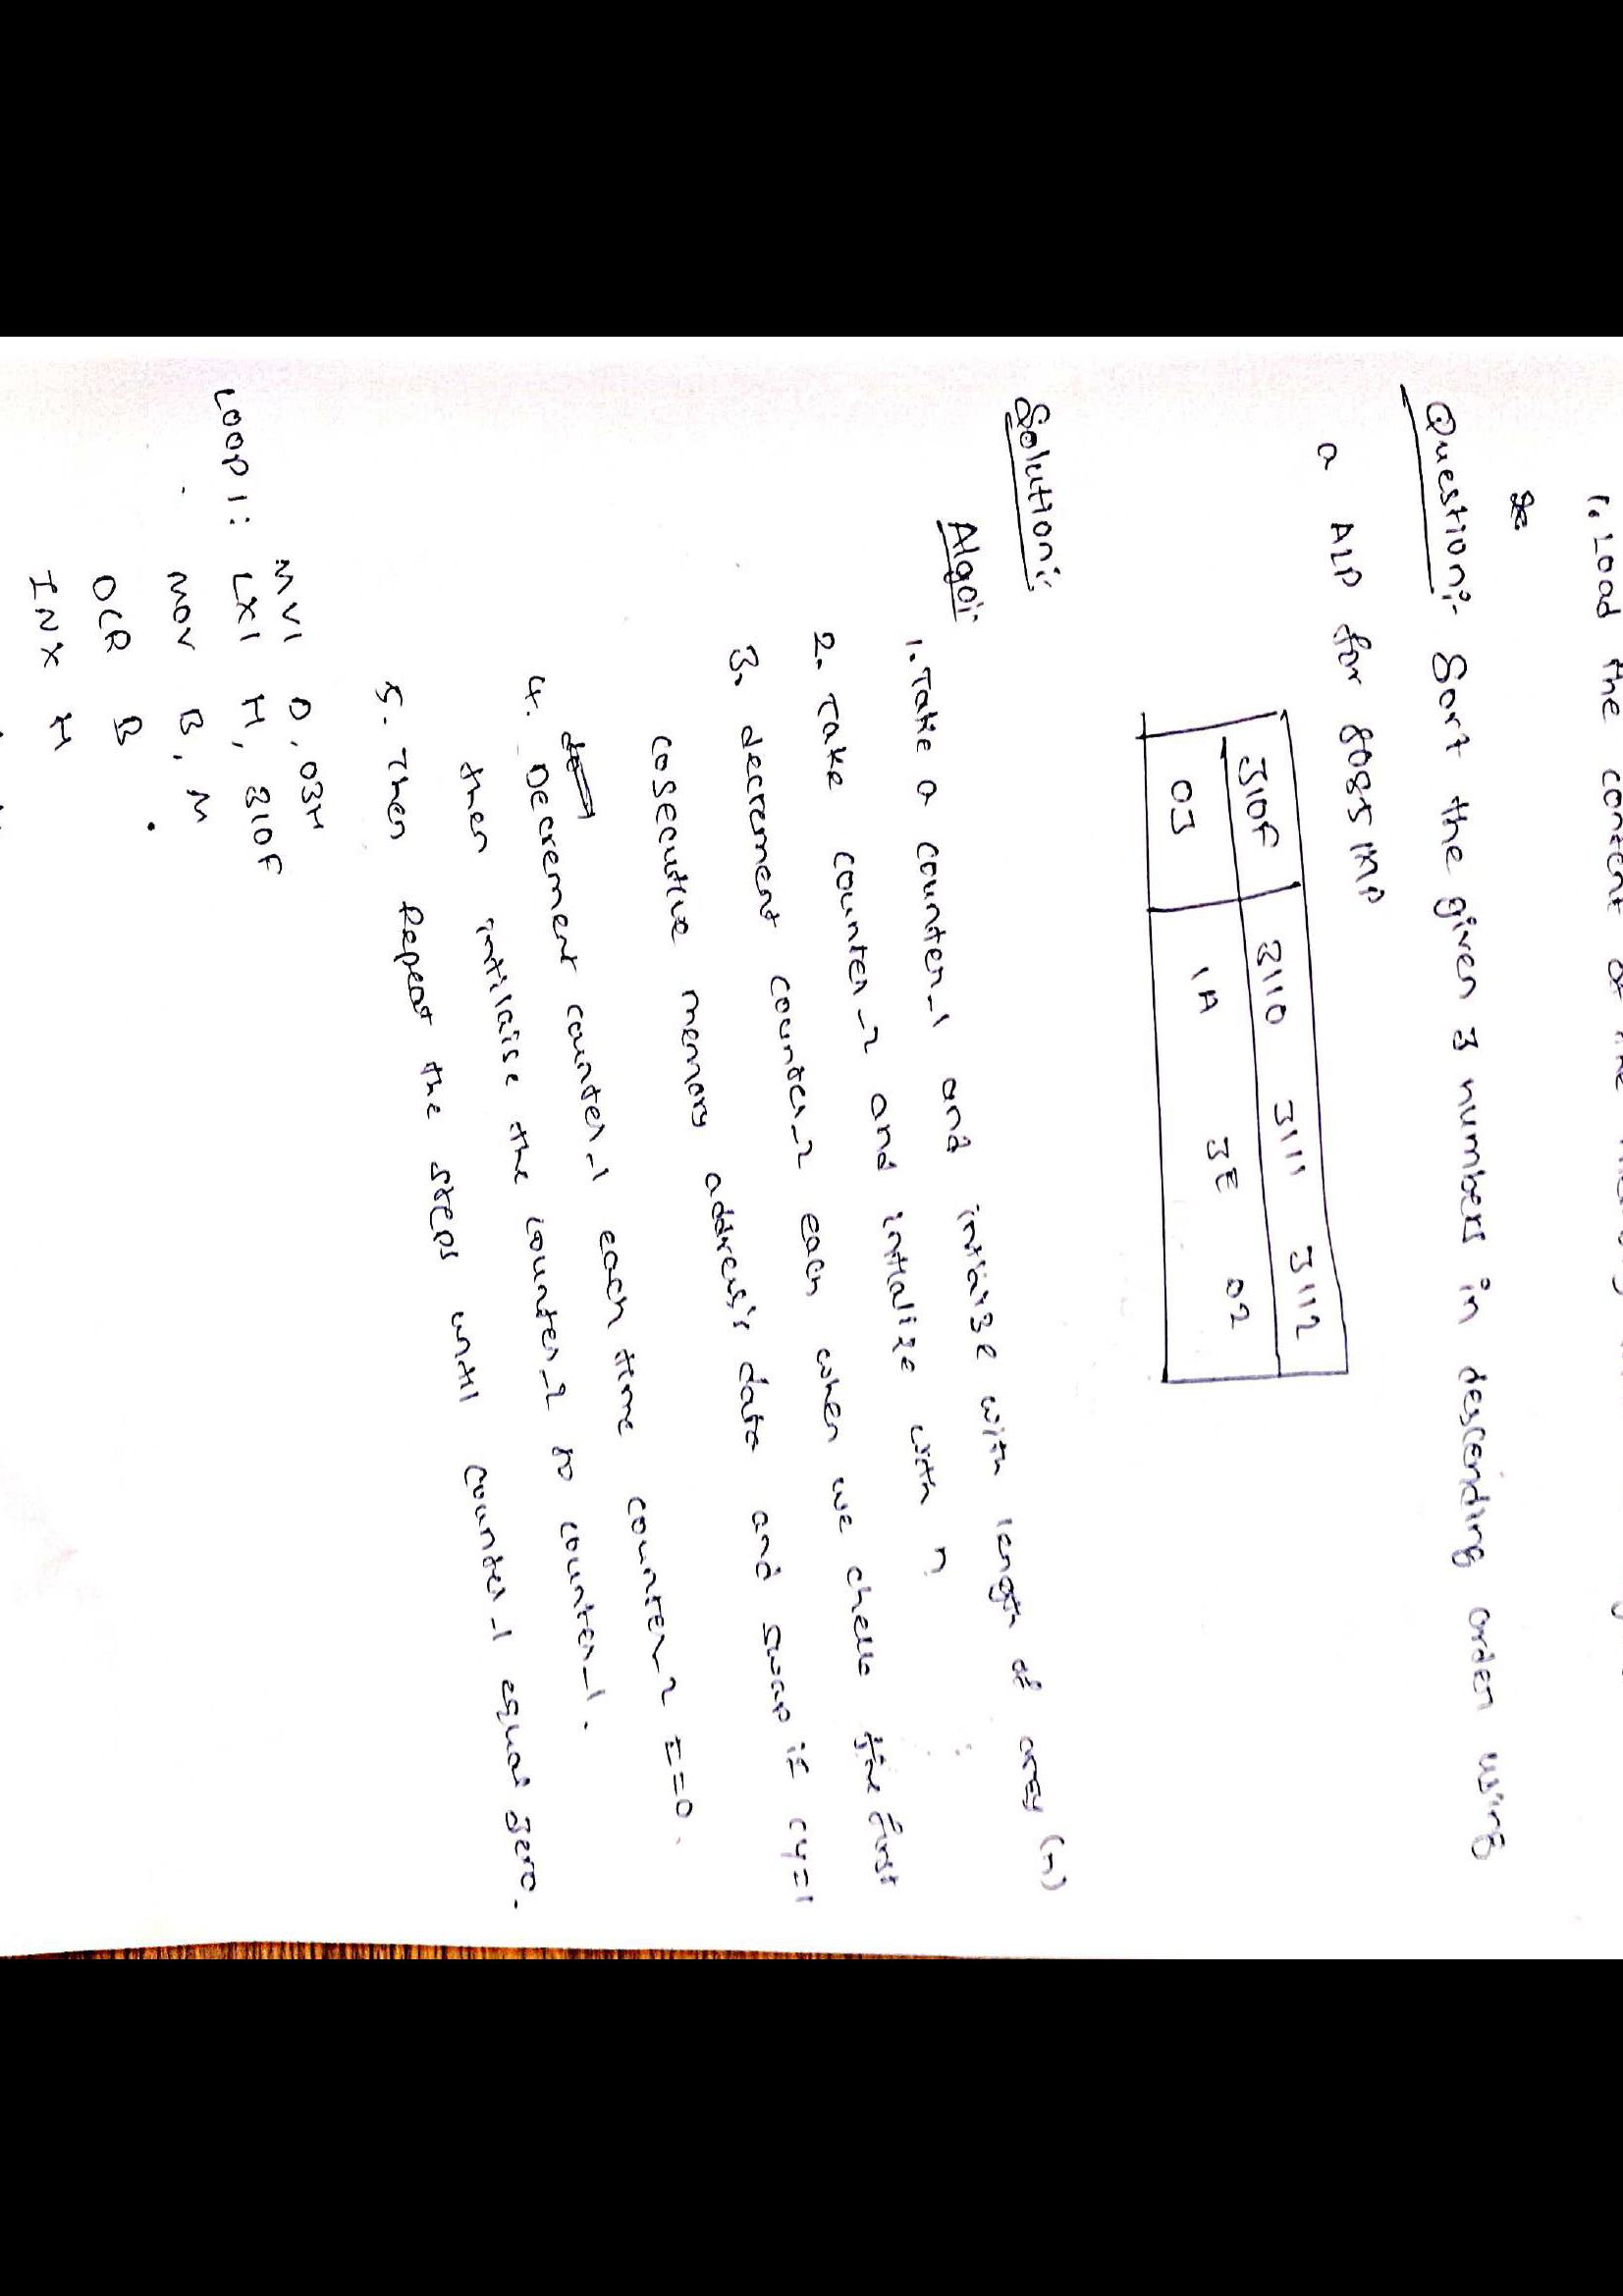 1. Load the content of the
Se
Question:- Sort the given 3 numbers in descending order using
a ALP for 8085 MP
310F 3110 3111 3112
03 1A 3E 02
Solution:-
Algo:-
1. Take a counter_1 and intialize with length of array (n)
2. Take counter_2 and intialize with n
3. decrement counter_2 each when we check the first
cosecutive memory address's data and swap if cy=1
4. Decrement counter_1 each time counter_2 ==0.
then intilaise the counter_2 to counter_1.
5. Then Repeat the steps until counter_1 equal zero.
MVI D, 03H
LOOP 1: LXI H, 310F
MOV B, M
DCR B
INX H